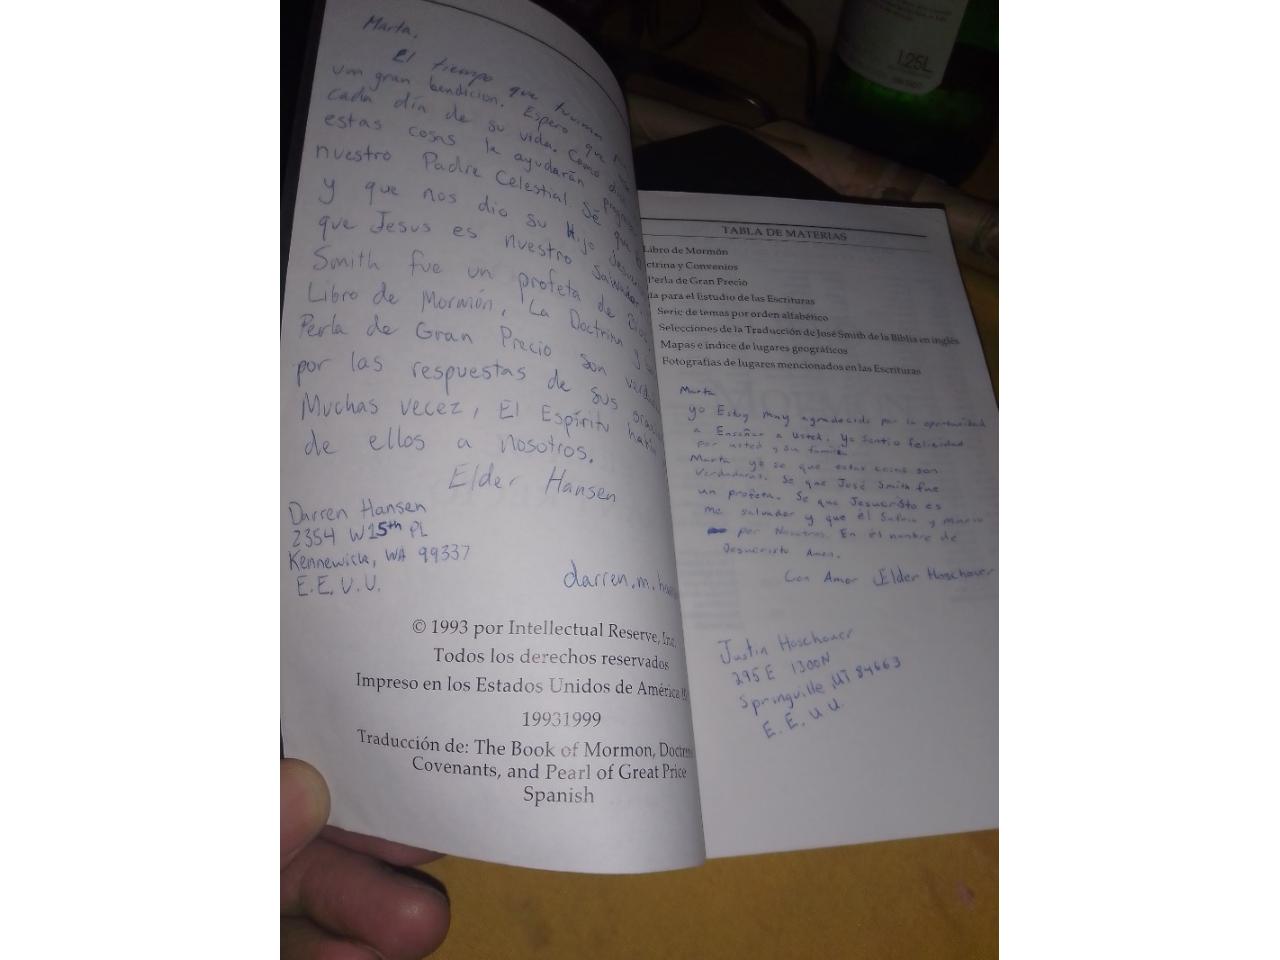 Marta,
El tiempo que tuvimos
um gran bendicion. Espero que
cada día de su vida. Como
estas cosas le ayudarán
nuestro Padre Celestial. Sé que
y que nos dio su Hijo
que Jesus es nuestro Salvador.
Smith fue un profeta de
Libro de Mormón, La Doctrina y
Perla de Gran Precio son
por las respuestas de sus
Muchas vecez, El Espíritu
de ellos a nosotros.
Elder Hansen
Darren Hansen
2354 W 15th PL
Kennewick, WA 99337
E.E.U.U.
darren.m.
© 1993 por Intellectual Reserve, Inc.
Todos los derechos reservados
Impreso en los Estados Unidos de América
19931999
Traducción de: The Book of Mormon,
Covenants, and Pearl of Great Price
Spanish
1.25L
TABLA DE MATERIAS
Libro de Mormón
y Convenios
Perla de Gran Precio
para el Estudio de las Escrituras
Serie de temas por orden alfabético
Selecciones de la Traducción de José Smith de la Biblia en inglés
Mapas e índice de lugares geográficos
Fotografías de lugares mencionados en las Escrituras
Marta
yo Estoy muy agradecido por la oportunidad
a Enseñar a usted. Yo sentio felicidad
por usted y su familia
Marta yo se que estas cosas son
verdaderas. Se que José Smith fue
un profeta. Se que Jesucristo es
me salvador y que él Sufrio y murio
por Nosotros. En el nombre de
Jesucristo Amen.
Con Amor Elder Hoschouer
Justin Hoschouer
295 E 1300 N
Springville, UT 84663
E.E.U.U.